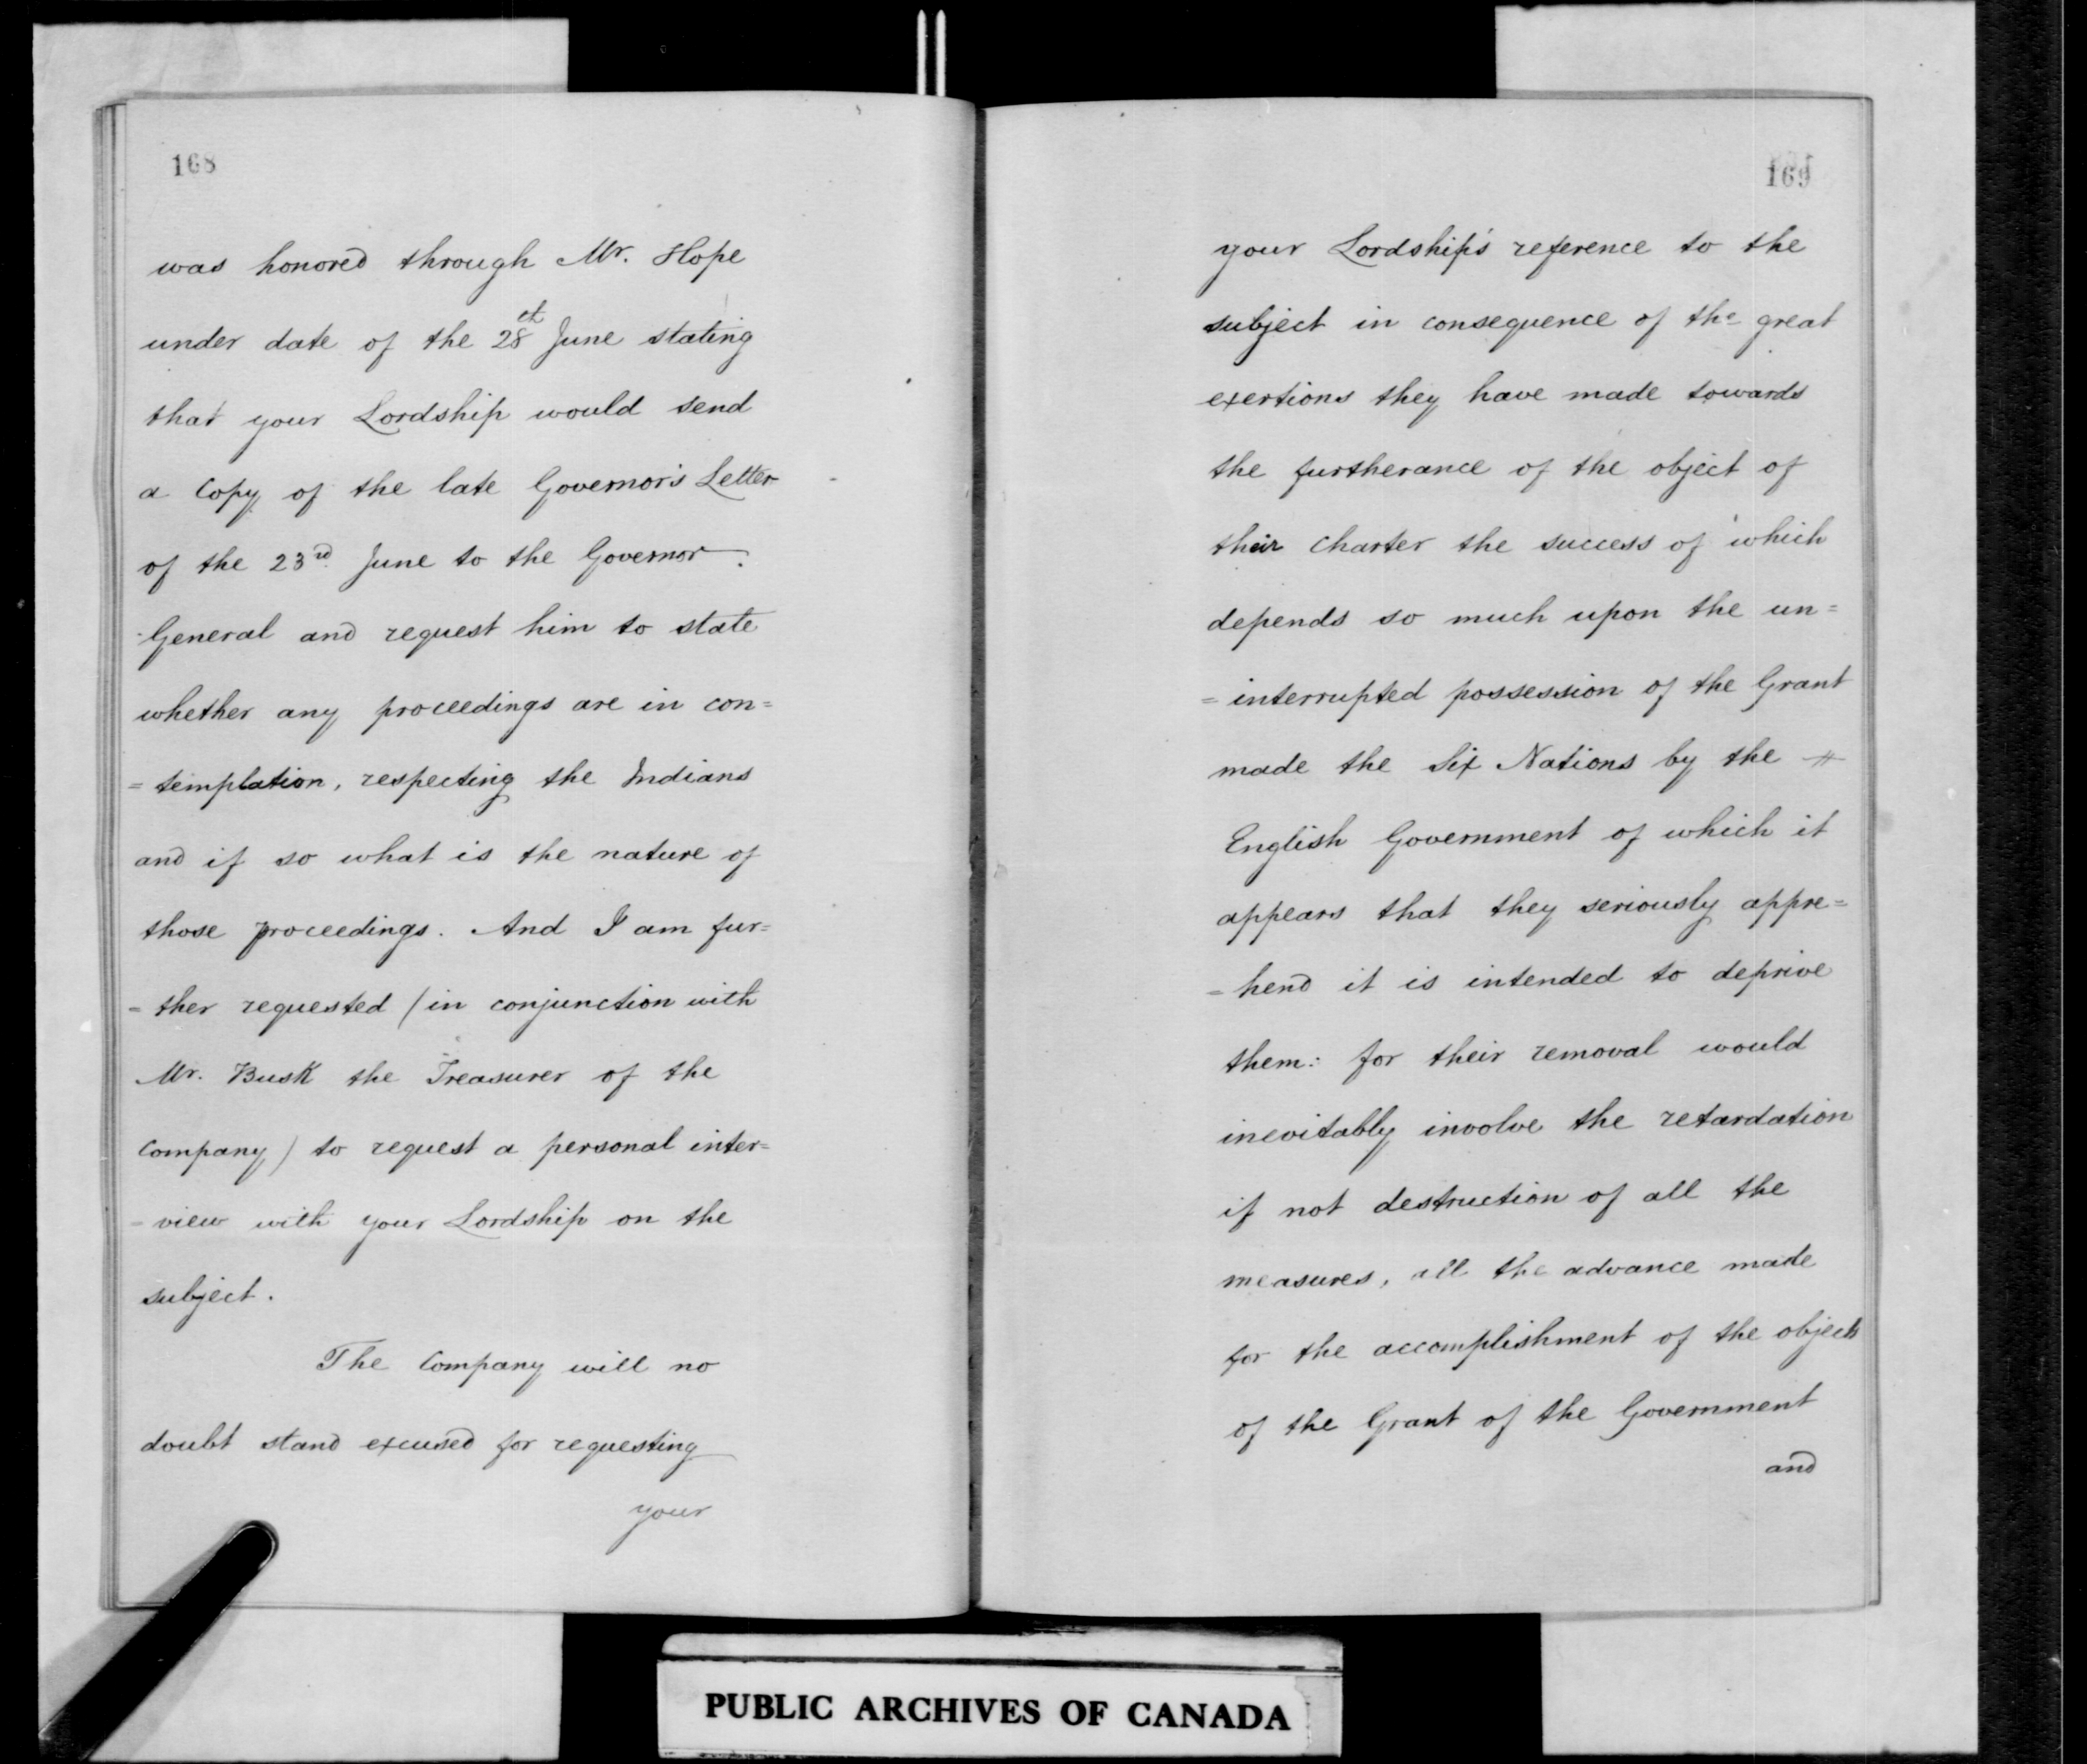 168
was honored through Mr. Hope
under date of the 28th June stating
that your Lordship would send
a Copy of the late Governor's Letter
of the 23rd June to the Governor
General and request him to state
whether any proceedings are in con=
=templation, respecting the Indians
and if so what is the nature of
those proceedings. And I am fur=
=ther requested (in conjunction with
Mr. Busk the Treasurer of the
Company) to request a personal inter=
=view with your Lordship on the
subject.
The Company will no
doubt stand excused for requesting
your
169
your Lordship's reference to the
subject in consequence of the great
exertions they have made towards
the furtherance of the object of
their Charter the success of which
depends so much upon the un=
=interrupted possession of the Grant
made the Six Nations by the
English Government of which it
appears that they seriously appre=
=hend it is intended to deprive
them: for their removal would
inevitably involve the retardation
if not destruction of all the
measures, all the advance made
for the accomplishment of the objects
of the Grant of the Government
and
PUBLIC ARCHIVES OF CANADA